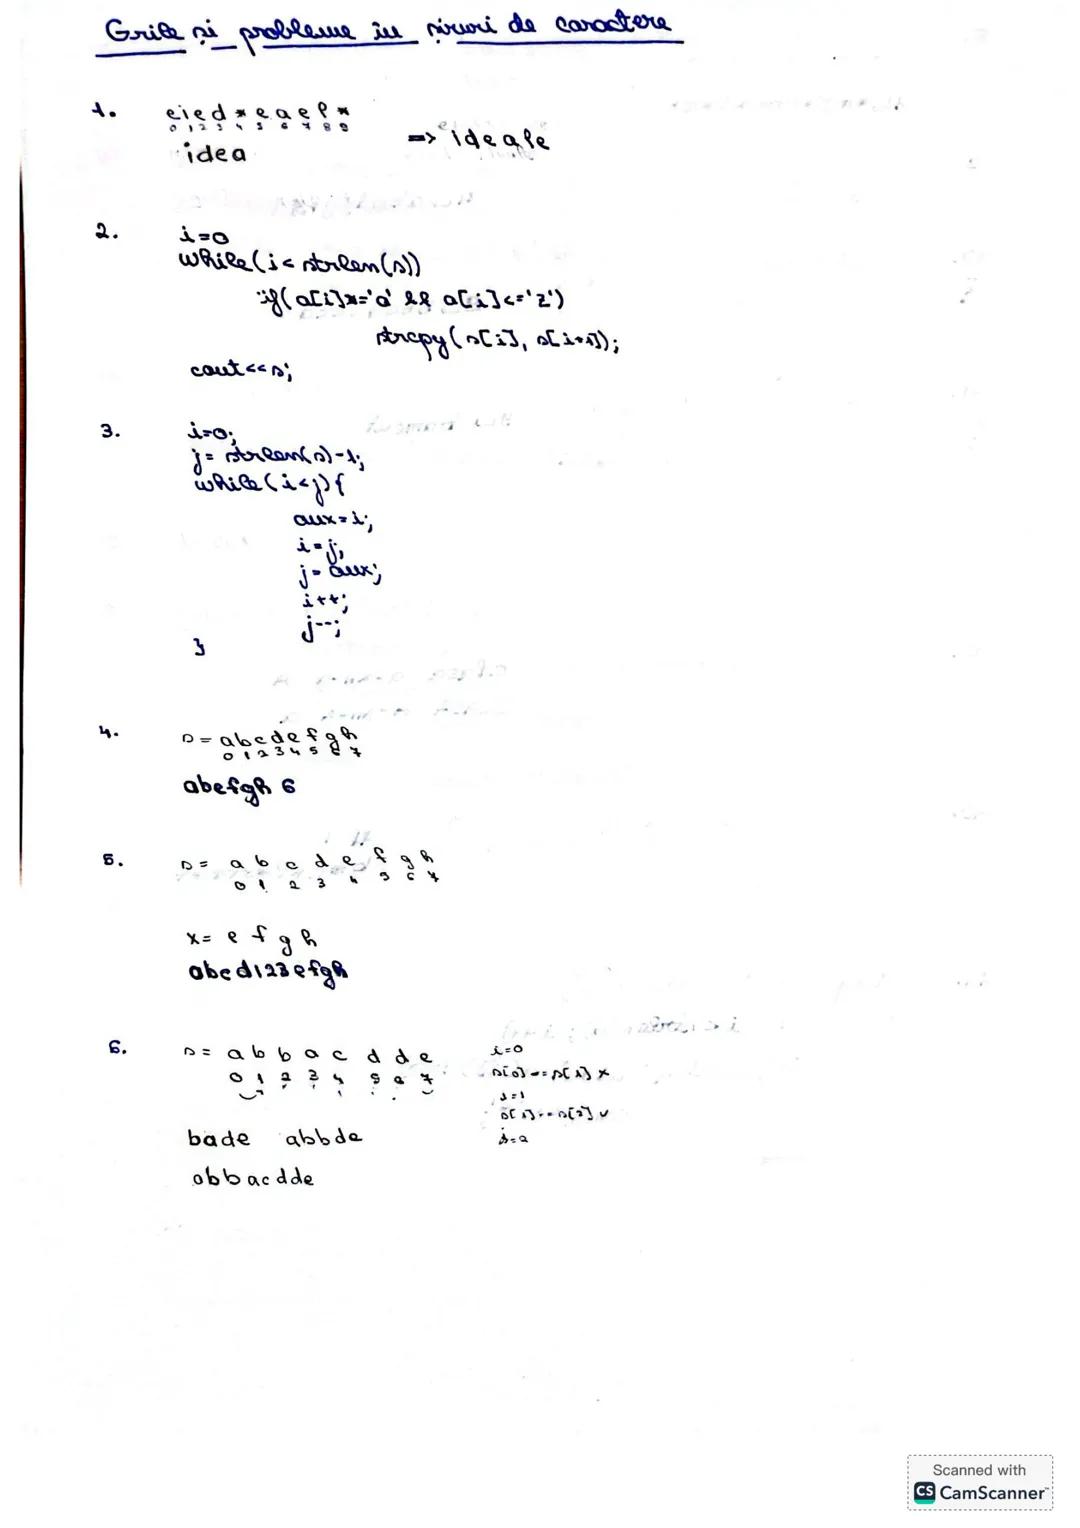 Grile și probleme în șiruri de caractere
1. eied*eael*
0 1 2 3 4 5 6 7 8 9
idea => ideale
2. i=0
while(i< strlen(s))
if(a[i]>='a' && a[i]<='z')
strcpy(s[i], s[i+1]);
cout<<s;
3. i=0;
j= strlen(s)-1;
while(i<j){
aux=i;
i=j;
j=aux;
i++;
j--;
}
4. s= abcdefgh
0 1 2 3 4 5 6 7
abefgh 6
5. s= a b c d e f g h
0 1 2 3 4 5 6 7
x= e f g h
abcd123efgh
6. s= a b b a c d d e
0 1 2 3 4 5 6 7
i=0
s[0]==s[1] x
i=1
s[1]==s[2] v
i=2
bade abbde
abbacdde
Scanned with
CS CamScanner